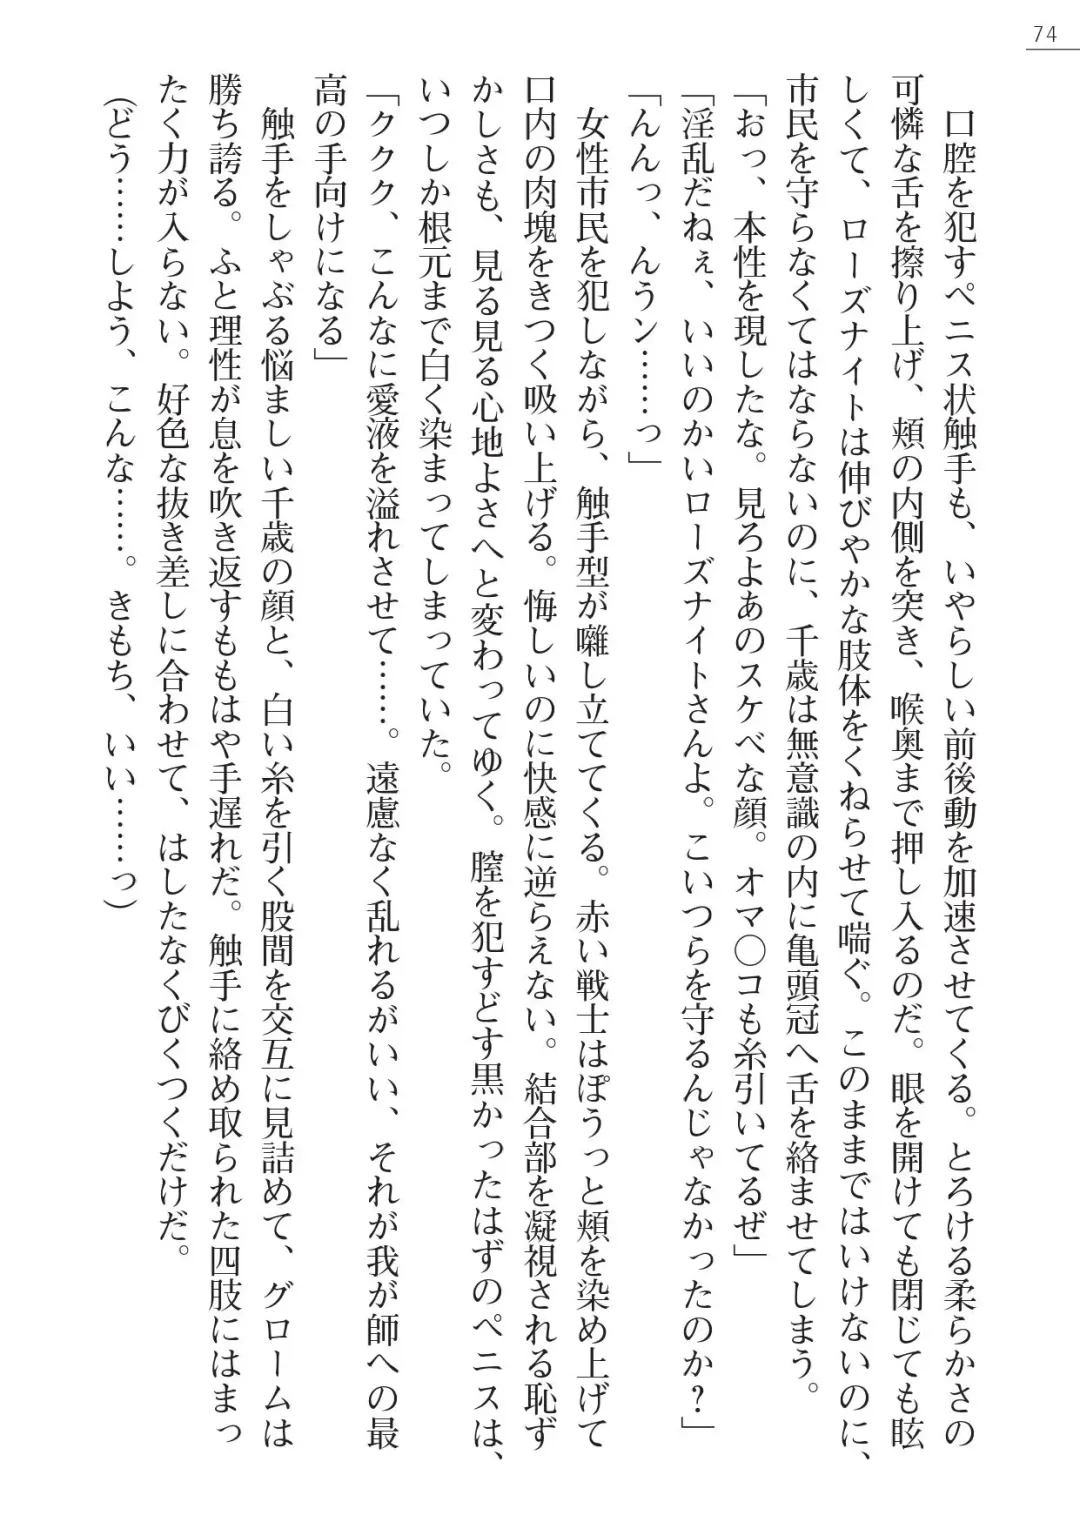 74
口腔を犯すペニス状触手も、いやらしい前後動を加速させてくる。とろける柔らかさの
可憐な舌を擦り上げ、頬の内側を突き、喉奥まで押し入るのだ。眼を開けても閉じても眩
しくて、ローズナイトは伸びやかな肢体をくねらせて喘ぐ。このままではいけないのに、
市民を守らなくてはならないのに、千歳は無意識の内に亀頭冠へ舌を絡ませてしまう。
「おっ、本性を現したな。見ろよあのスケベな顔。オマ〇コも糸引いてるぜ」
「淫乱だねぇ、いいのかいローズナイトさんよ。こいつらを守るんじゃなかったのか？」
「んんっ、んうン……っ」
女性市民を犯しながら、触手型が囃し立ててくる。赤い戦士はぽうっと頬を染め上げて
口内の肉塊をきつく吸い上げる。悔しいのに快感に逆らえない。結合部を凝視される恥ず
かしさも、見る見る心地よさへと変わってゆく。膣を犯すどす黒かったはずのペニスは、
いつしか根元まで白く染まってしまっていた。
「ククク、こんなに愛液を溢れさせて……。遠慮なく乱れるがいい、それが我が師への最
高の手向けになる」
触手をしゃぶる悩ましい千歳の顔と、白い糸を引く股間を交互に見詰めて、グロームは
勝ち誇る。ふと理性が息を吹き返すももはや手遅れだ。触手に絡め取られた四肢にはまっ
たく力が入らない。好色な抜き差しに合わせて、はしたなくびくつくだけだ。
（どう……しよう、こんな……。きもち、いい……っ）